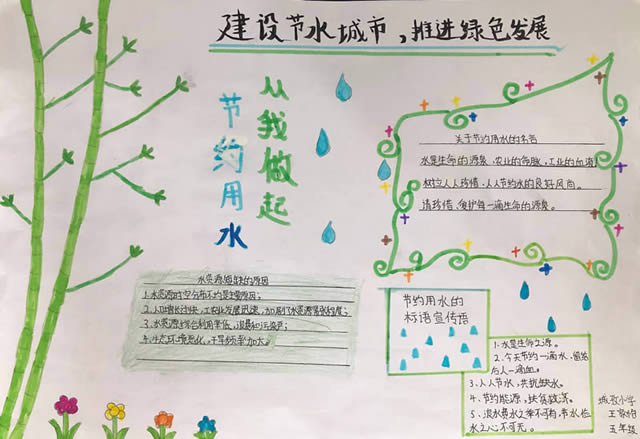 建设节水城市，推进绿色发展
节约用水
从我做起
关于节约用水的名言
水是生命的源泉、农业的命脉、工业的血液！
树立人人珍惜、人人节约水的良好风尚。
请珍惜、爱护每一滴生命的源泉。
水资源短缺的原因
1、水资源时空分布不均是主要原因；
2、人口增长过快，工农业发展迅速，加剧了水资源紧张程度；
3、水资源综合利用率低、浪费和污染严
4、生态环境恶化，干旱频率加大。
节约用水的
标语宣传语
1、水是生命之源。
2、今天节约一滴水，留给
后人一滴血。
3、人人节水，共抗缺水。
4、节约能源，扶贫救济。
5、浪水费水之举不可有，节水惜
水之心不可无。
小学
五年级